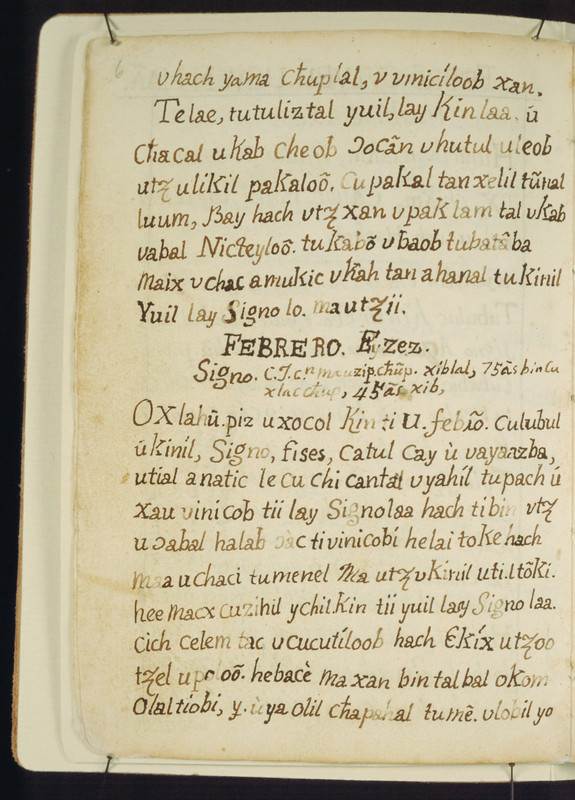 6
v hach yama cħuplal, v viniciloob xan.
Te lae, tutuliztal yuil, lay Kin laa. ú
cħacal u Kab cheob ɔocãn v hutul uleob
utz ulikil pakaloõ. Cu pakal tan xelil tũnal
luum, Bay hach vtz xan v pak lam tal vKab
vabal Nicteyloõ. tu Kabõ v baob tubatãba
Maix v chac a mukic v Kah tan a hanal tu Kinil
Yuil lay Signo lo. ma utzii.
FEBRERO. Ezez.
Signo. xiblal, 75 ãs bin cu
xlac cħup, 45 ãs xib,
OXlahũ. piz u xocol Kin ti U. febĩo. Culubul
ú Kinil, Signo, fises, Catul Cay ù vayaazba,
utial anatic le cu chi cantal v yahíl tu pach ú
xau vinicob tii lay Signo laa hach ti bin vtz
u ɔabal halab ɔàc ti vinicobí he lai toke hach
maa u chaci tumenel Ma utz v Kinil uti.ltõki.
hee macx cuzihil ychil Kin tii yuil lay Signo laa.
cich celem tac v cucutíloob hach Ekíx utzoo
tzel u poloõ. hebacè ma xan bin tal bal okom
Olal tiobi, y. ù ya olil cħapahal tumẽ. vlobil yo